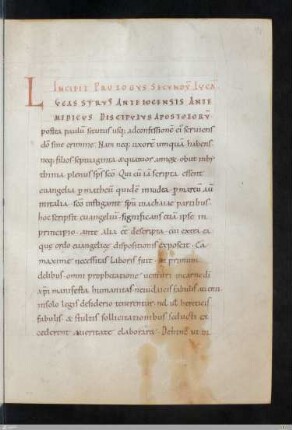 INCIPIT PROLOGUS SECUNDŪ LUCĀ
LUCAS SYRUS ANTEIOCENSIS ARTE
MEDICUS DISCIPULUS APOSTOLORŪ
postea paulū secutus usq; ad confessionē ei serviens
dō sine crimine. Nam neq; uxorē umquā habens
neq; filios septuaginta & quattuor annorū obiit in bithinia
plenus spū scō. Qui cū iā scripta essent
evangelia p matheū quidē in iudea p marcū aū
in italia sco instigante spū in achaiae partibus
hoc scripsit evangeliū significans etiā ipse in
principio ante alia ēē descripta cui extra ea
que ordo evangelicę dispositionis exposcit ea
maxime necessitas laboris fuit ut primum
delibus omni prophetatione venturi in carnē dī
xpī manifesta humanitas ne iudaicis fabulis
in solo legis desiderio tenerentur ne hereticis
fabulis & stultis sollicitationibus seducti excederent
a veritate elaboraret Dehinc ut in